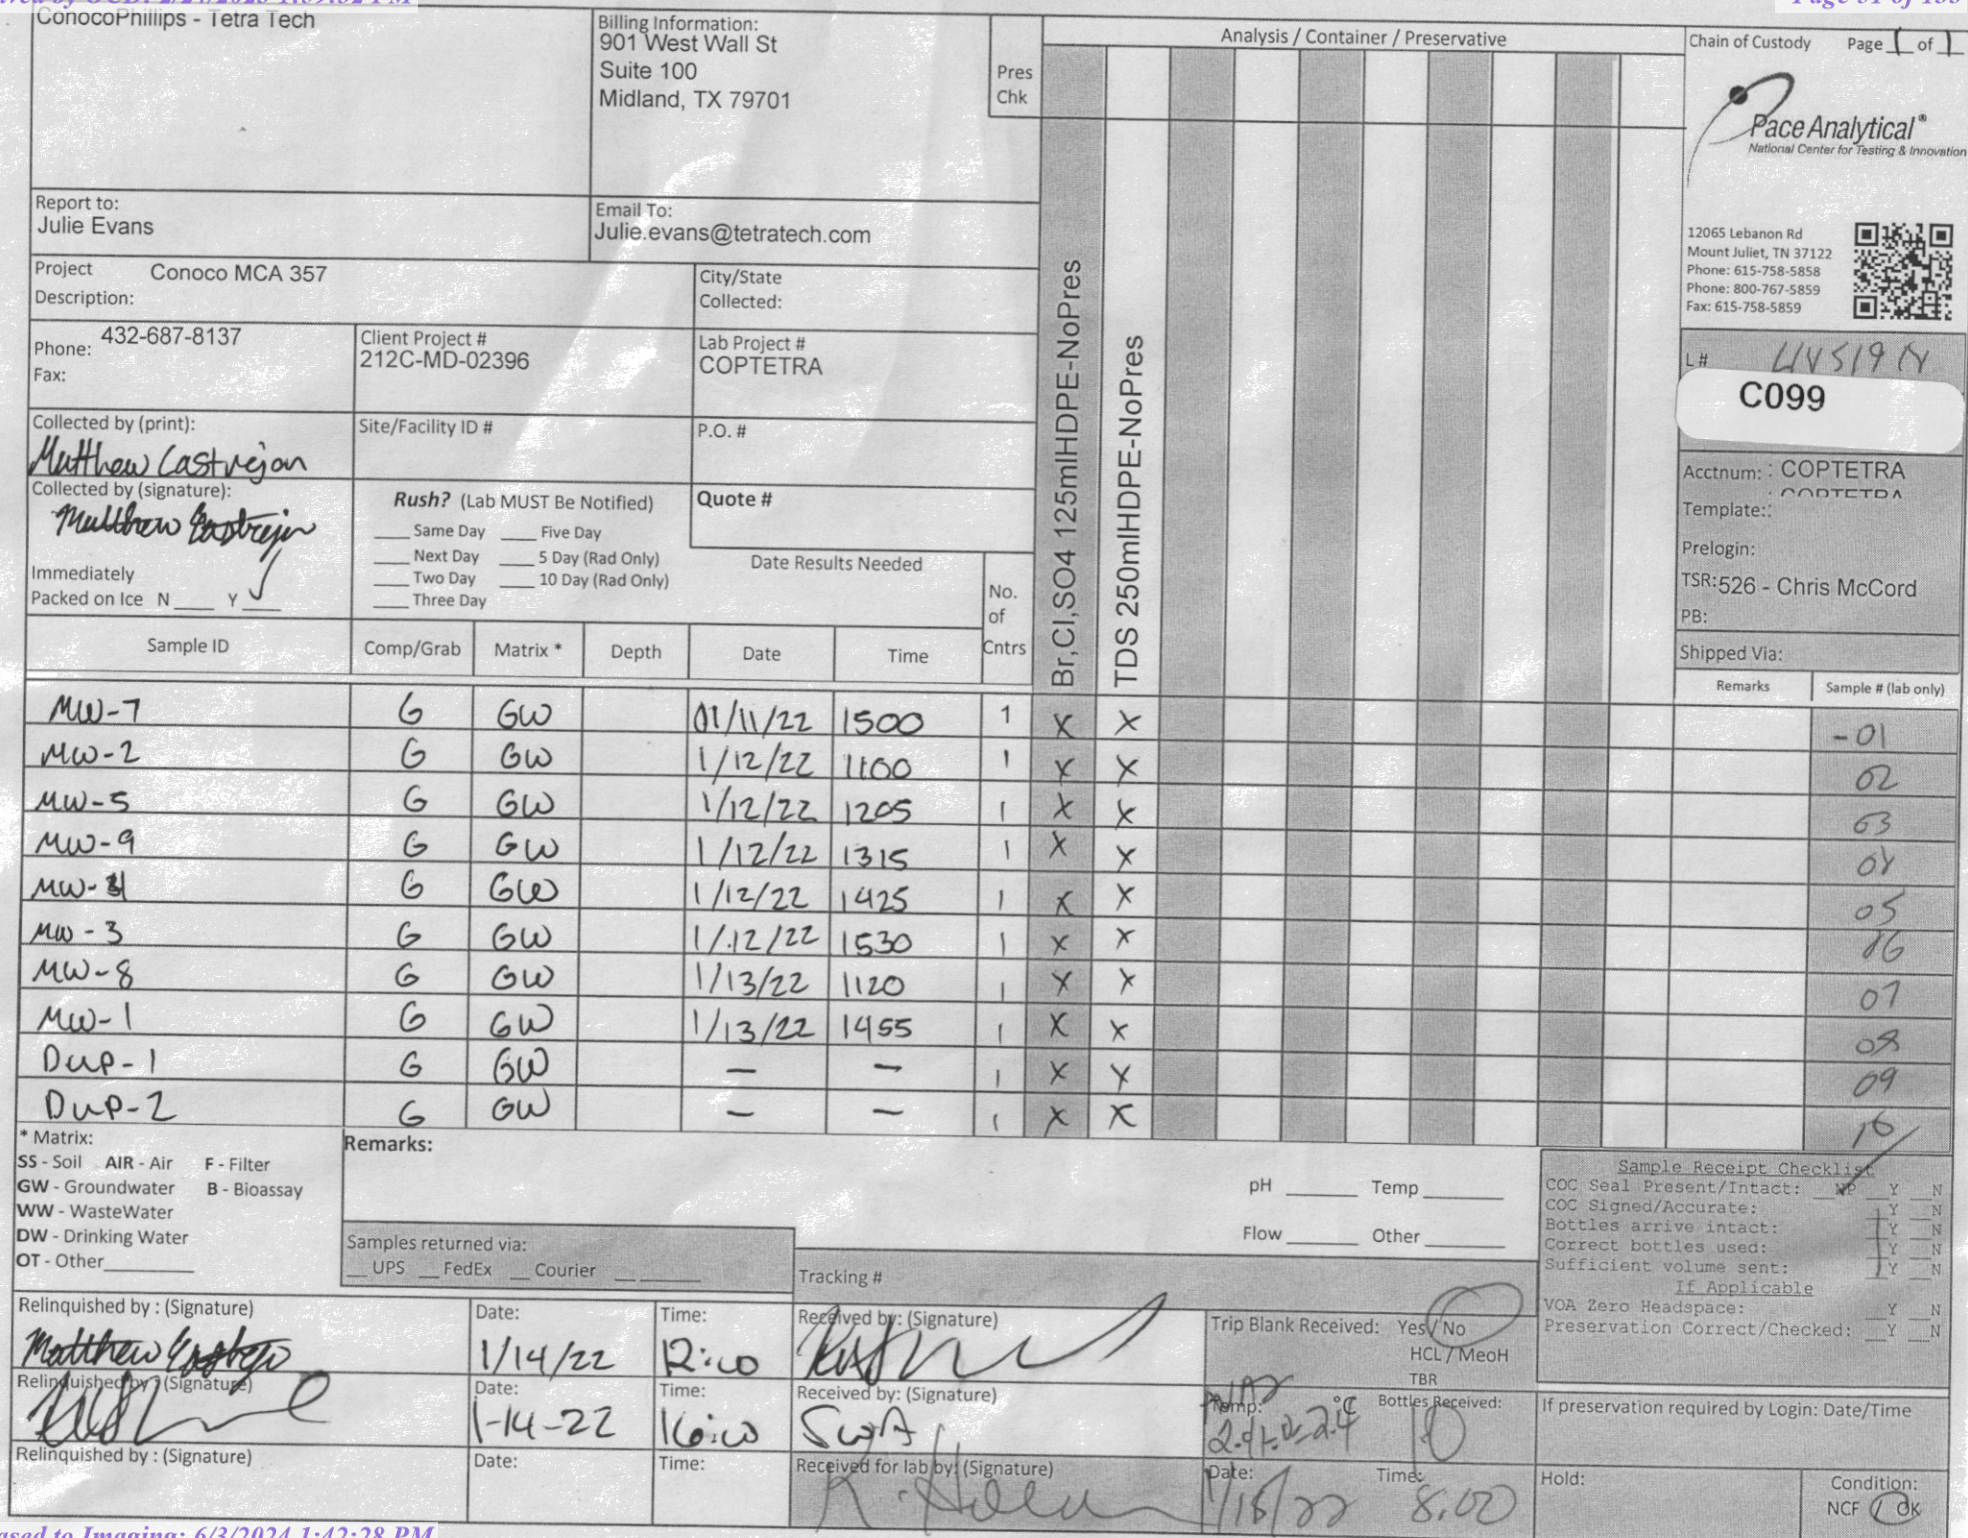 ConocoPhillips - Tetra Tech
Billing Information:
901 West Wall St
Suite 100
Midland, TX 79701
Pres
Chk
Analysis / Container / Preservative
Chain of Custody Page 1 of 1
Pace Analytical®
National Center for Testing & Innovation
12065 Lebanon Rd
Mount Juliet, TN 37122
Phone: 615-758-5858
Phone: 800-767-5859
Fax: 615-758-5859
Report to:
Julie Evans
Email To:
Julie.evans@tetratech.com
Project Description: Conoco MCA 357
City/State
Collected:
Phone: 432-687-8137
Fax:
Client Project #
212C-MD-02396
Lab Project #
COPTETRA
L#
C099
Collected by (print):
Matthew Castrejon
Site/Facility ID #
P.O. #
Collected by (signature):
Matthew Castrejon
Rush? (Lab MUST Be Notified)
___ Same Day ___ Five Day
___ Next Day ___ 5 Day (Rad Only)
___ Two Day ___ 10 Day (Rad Only)
___ Three Day
Quote #
Date Results Needed
Immediately
Packed on Ice N ___ Y ✓
No.
of
Cntrs
Br,Cl,SO4 125mlHDPE-NoPres
TDS 250mlHDPE-NoPres
Acctnum: : COPTETRA
Template:: COPTETRA
Prelogin:
TSR:526 - Chris McCord
PB:
Shipped Via:
Sample ID Comp/Grab Matrix * Depth Date Time Remarks Sample # (lab only)
MW-7 G GW 01/11/22 1500 1 X X -01
MW-2 G GW 1/12/22 1100 1 X X 02
MW-5 G GW 1/12/22 1205 1 X X 03
MW-9 G GW 1/12/22 1315 1 X X 04
MW- G GW 1/12/22 1425 1 X X 05
MW-3 G GW 1/12/22 1530 1 X X 06
MW-8 G GW 1/13/22 1120 1 X X 07
MW-1 G GW 1/13/22 1455 1 X X 08
Dup-1 G GW — — 1 X X 09
Dup-2 G GW — — 1 X X 10
* Matrix:
SS - Soil AIR - Air F - Filter
GW - Groundwater B - Bioassay
WW - WasteWater
DW - Drinking Water
OT - Other
Remarks:
pH ___ Temp ___
Flow ___ Other ___
Samples returned via:
__ UPS __ FedEx __ Courier
Tracking #
Sample Receipt Checklist
COC Seal Present/Intact: NP Y N
COC Signed/Accurate: Y N
Bottles arrive intact: Y N
Correct bottles used: Y N
Sufficient volume sent: Y N
If Applicable
VOA Zero Headspace: Y N
Preservation Correct/Checked: Y N
Relinquished by : (Signature)
Matthew Castrejon
Date:
1/14/22
Time:
12:00
Received by: (Signature)
Trip Blank Received: Yes / No
HCL / MeoH
TBR
Relinquished by : (Signature)
Date:
1-14-22
Time:
16:00
Received by: (Signature)
Temp: °C
Bottles Received:
10
If preservation required by Login: Date/Time
Relinquished by : (Signature)
Date:
Time:
Received for lab by: (Signature)
Date:
Time:
8:00
Hold:
Condition:
NCF / OK